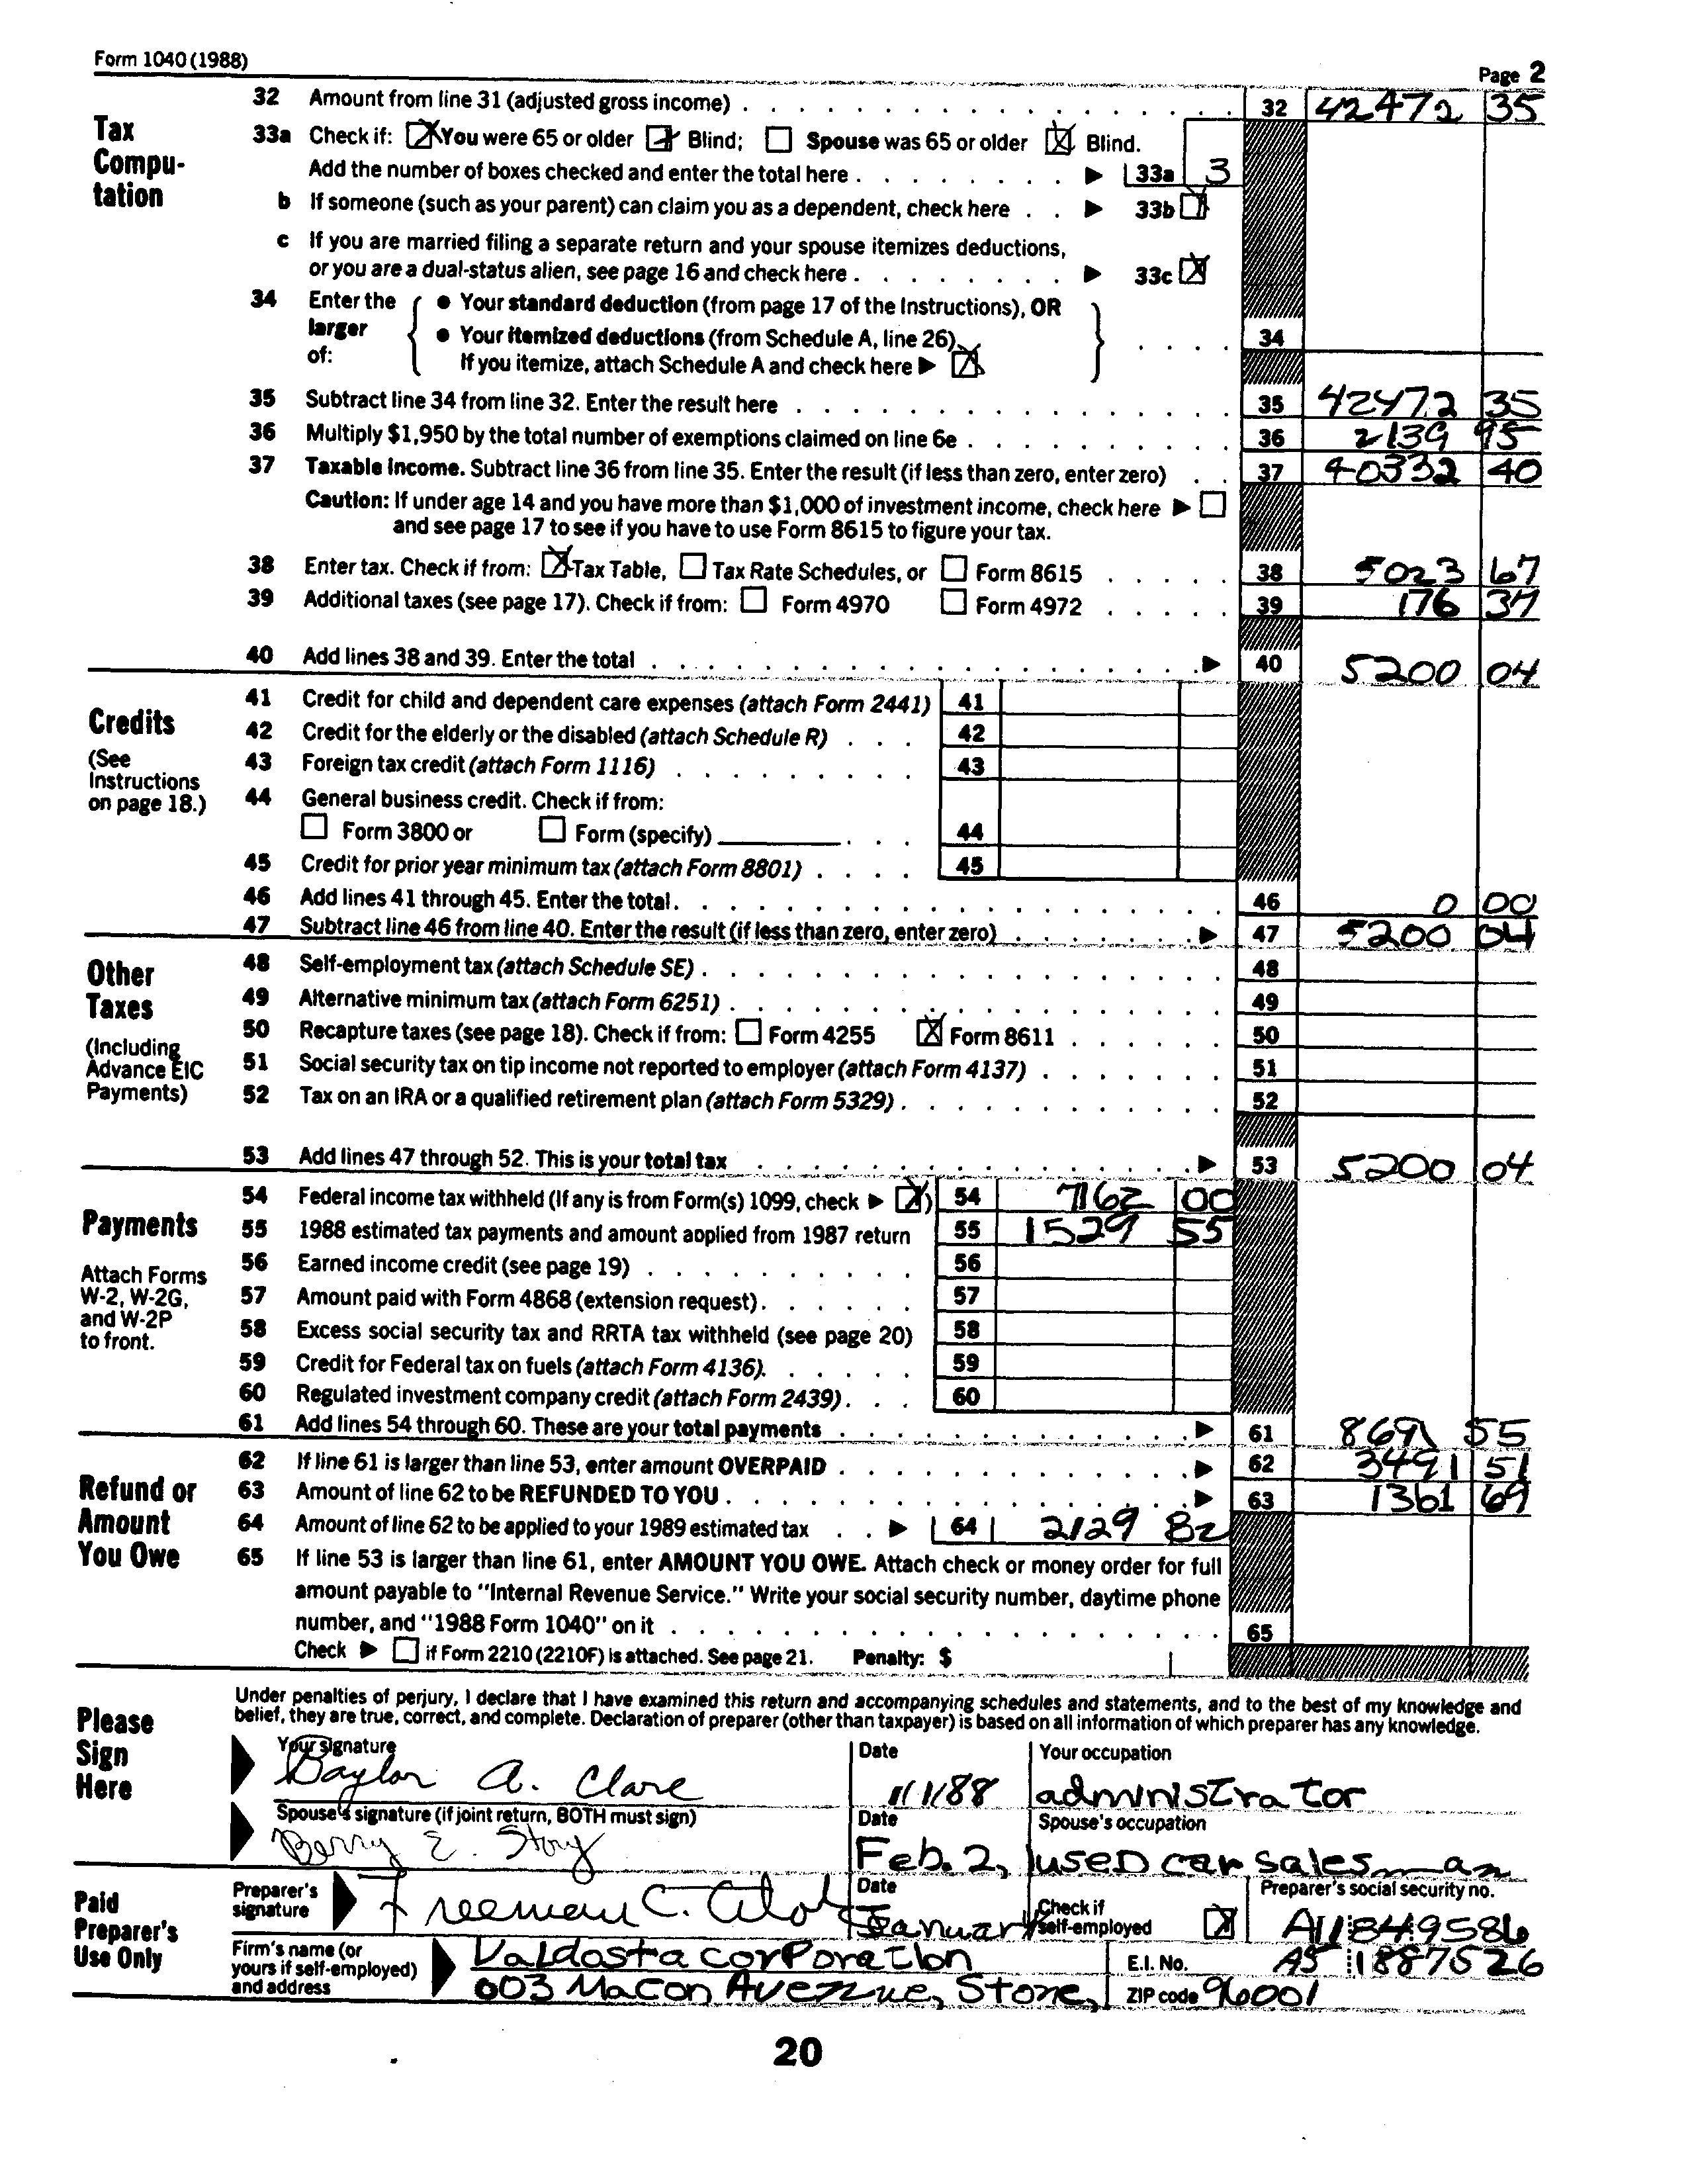 Form 1040 (1988)
Page 2
Tax Compu- tation
32 Amount from line 31 (adjusted gross income) 32 42472 35
33a Check if: You were 65 or older Blind; Spouse was 65 or older Blind.
Add the number of boxes checked and enter the total here 33a 3
b If someone (such as your parent) can claim you as a dependent, check here 33b
c If you are married filing a separate return and your spouse itemizes deductions,
or you are a dual-status alien, see page 16 and check here 33c
34 Enter the larger of:
● Your standard deduction (from page 17 of the Instructions), OR
● Your itemized deductions (from Schedule A, line 26).
If you itemize, attach Schedule A and check here 34
35 Subtract line 34 from line 32. Enter the result here 35 42472 35
36 Multiply $1,950 by the total number of exemptions claimed on line 6e 36 2139 95
37 Taxable income. Subtract line 36 from line 35. Enter the result (if less than zero, enter zero) 37 40332 40
Caution: If under age 14 and you have more than $1,000 of investment income, check here
and see page 17 to see if you have to use Form 8615 to figure your tax.
38 Enter tax. Check if from: Tax Table, Tax Rate Schedules, or Form 8615 38 5023 67
39 Additional taxes (see page 17). Check if from: Form 4970 Form 4972 39 176 37
40 Add lines 38 and 39. Enter the total 40 5200 04
Credits
(See Instructions on page 18.)
41 Credit for child and dependent care expenses (attach Form 2441) 41
42 Credit for the elderly or the disabled (attach Schedule R) 42
43 Foreign tax credit (attach Form 1116) 43
44 General business credit. Check if from:
Form 3800 or Form (specify) 44
45 Credit for prior year minimum tax (attach Form 8801) 45
46 Add lines 41 through 45. Enter the total 46 0 00
47 Subtract line 46 from line 40. Enter the result (if less than zero, enter zero) 47 5200 04
Other Taxes
(Including Advance EIC Payments)
48 Self-employment tax (attach Schedule SE) 48
49 Alternative minimum tax (attach Form 6251) 49
50 Recapture taxes (see page 18). Check if from: Form 4255 Form 8611 50
51 Social security tax on tip income not reported to employer (attach Form 4137) 51
52 Tax on an IRA or a qualified retirement plan (attach Form 5329) 52
53 Add lines 47 through 52. This is your total tax 53 5200 04
Payments
Attach Forms W-2, W-2G, and W-2P to front.
54 Federal income tax withheld (If any is from Form(s) 1099, check ) 54 7162 00
55 1988 estimated tax payments and amount applied from 1987 return 55 1529 55
56 Earned income credit (see page 19) 56
57 Amount paid with Form 4868 (extension request) 57
58 Excess social security tax and RRTA tax withheld (see page 20) 58
59 Credit for Federal tax on fuels (attach Form 4136) 59
60 Regulated investment company credit (attach Form 2439) 60
61 Add lines 54 through 60. These are your total payments 61 8691 55
Refund or Amount You Owe
62 If line 61 is larger than line 53, enter amount OVERPAID 62 3491 51
63 Amount of line 62 to be REFUNDED TO YOU 63 1361 69
64 Amount of line 62 to be applied to your 1989 estimated tax 64 2129 82
65 If line 53 is larger than line 61, enter AMOUNT YOU OWE. Attach check or money order for full
amount payable to "Internal Revenue Service." Write your social security number, daytime phone
number, and "1988 Form 1040" on it 65
Check if Form 2210 (2210F) is attached. See page 21. Penalty: $
Please Sign Here
Under penalties of perjury, I declare that I have examined this return and accompanying schedules and statements, and to the best of my knowledge and
belief, they are true, correct, and complete. Declaration of preparer (other than taxpayer) is based on all information of which preparer has any knowledge.
Your signature Date Your occupation
Baylor A. Clare 1/1/88 administrator
Spouse's signature (if joint return, BOTH must sign) Date Spouse's occupation
Berry E. Story Feb. 2, used car sales man
Paid Preparer's Use Only
Preparer's signature Freeman C. Date January Check if self-employed Preparer's social security no. A11849586
Firm's name (or yours if self-employed) and address
Valdosta corporation E.I. No. A5 1887526
003 Macon Avenue, Stone, ZIP code 96001
20